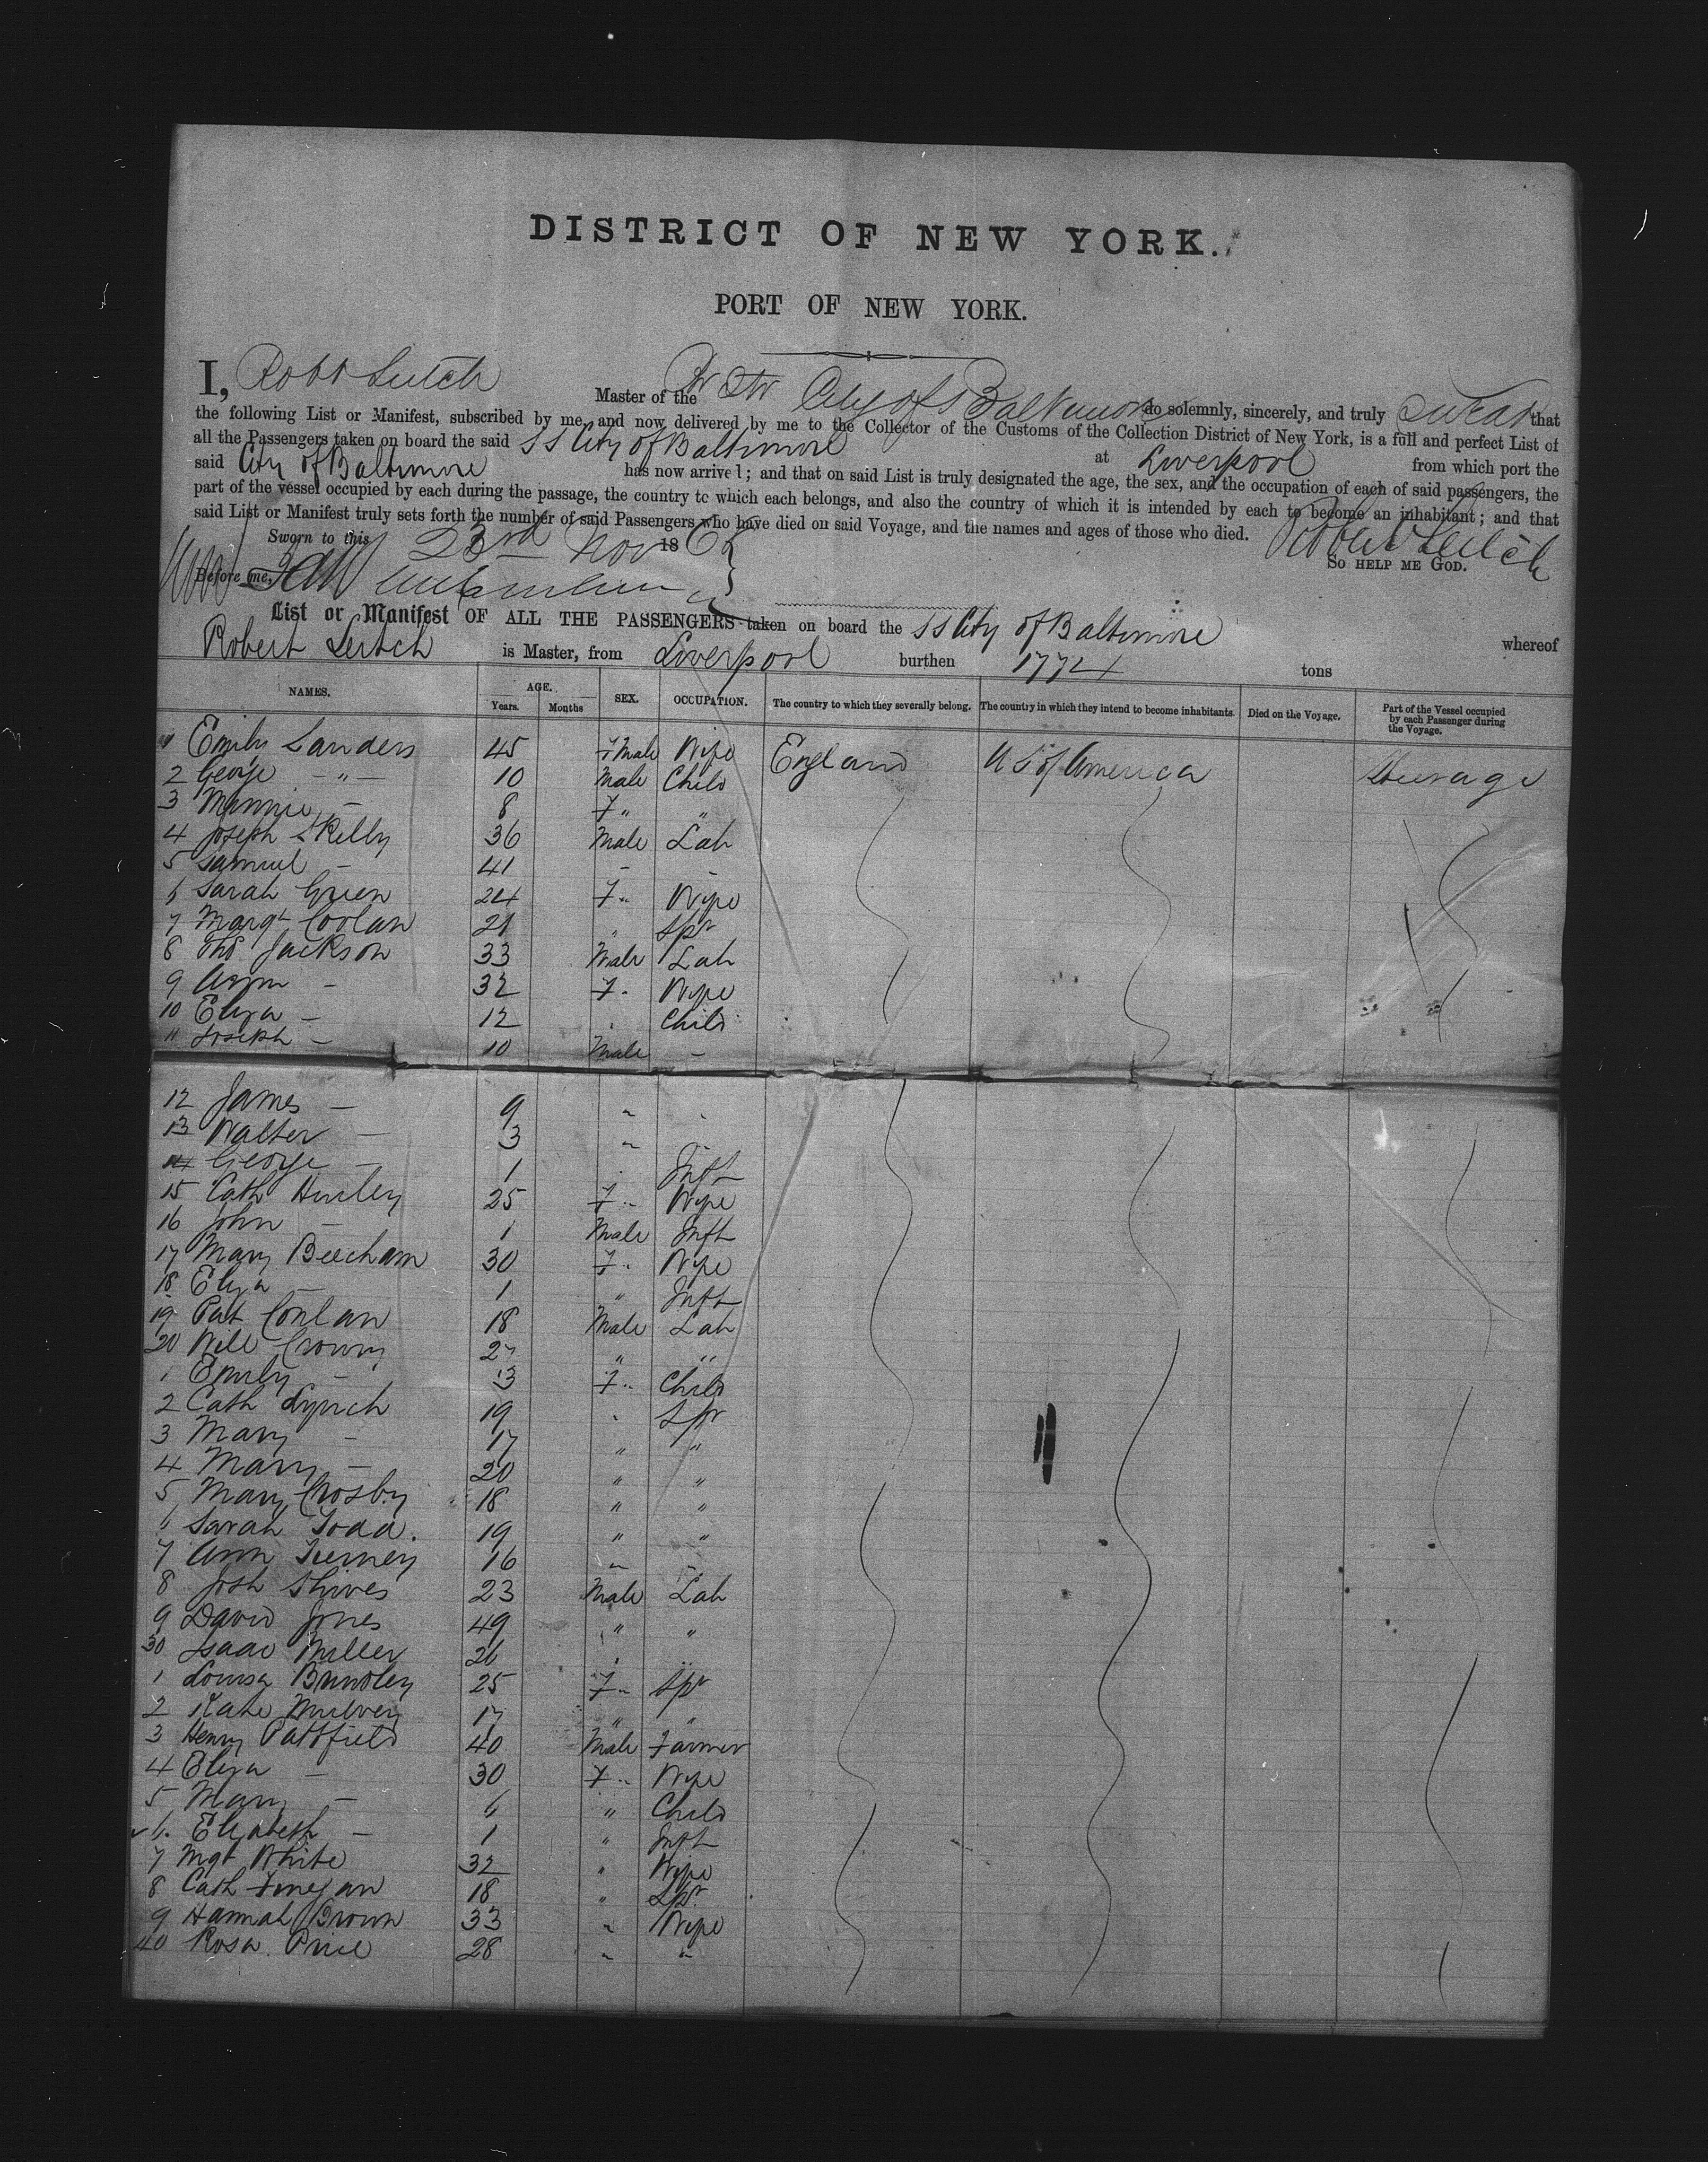 DISTRICT OF NEW YORK.
PORT OF NEW YORK.
I, Robt Leitch Master of the Br Str City of Baltimore do solemnly, sincerely, and truly swear that
the following List or Manifest, subscribed by me, and now delivered by me to the Collector of the Customs of the Collection District of New York, is a full and perfect List of
all the Passengers taken on board the said SS City of Baltimore at Liverpool from which port the
said City of Baltimore has now arrived; and that on said List is truly designated the age, the sex, and the occupation of each of said passengers, the
part of the vessel occupied by each during the passage, the country to which each belongs, and also the country of which it is intended by each to become an inhabitant; and that
said List or Manifest truly sets forth the number of said Passengers who have died on said Voyage, and the names and ages of those who died. Robert Leitch
Sworn to this 23rd Nov 186
So help me God.
Before me,
List or Manifest OF ALL THE PASSENGERS taken on board the SS City of Baltimore whereof
Robert Leitch is Master, from Liverpool burthen 1774 tons
NAMES. AGE. Years. Months SEX. OCCUPATION. The country to which they severally belong. The country in which they intend to become inhabitants. Died on the Voyage. Part of the Vessel occupied by each Passenger during the Voyage.
1 Emily Sanders 45 FMale Wife England U S of America Steerage
2 George -"- 10 Male Child
3 Minnie - 8 F" "
4 Joseph Skelly 36 Male Lab
5 Samuel - 41 - -
6 Sarah Green 24 F " Wife
7 Margt Coolan 21 " Spr
8 Thos Jackson 33 Male Lab
9 Ann - 32 F " Wife
10 Eliza - 12 " Child
11 Joseph - 10 Male -
12 James - 9 " "
13 Walter - 3 "
14 George - 1 " Inft
15 Cath Hurley 25 F " Wife
16 John - 1 Male Inft
17 Mary Beecham 30 F " Wife
18 Eliza - 1 " Inft
19 Pat Conlan 18 Male Lab
20 Will 27 " "
1 Emily - 3 F " Child
2 Cath Lynch 19 " Spr
3 Mary - 17 " "
4 Mary - 20 " "
5 Mary Crosby 18 " "
6 Sarah Todd. 19 " "
7 Ann Tierney 16 " "
8 Josh Shives 23 Male Lab
9 David Jones 49 " "
30 Isaac Miller 26 " "
1 Louisa Brindley 25 F " Spr
2 Kate Mulvey 17 " "
3 Henry Pattfield 40 Male Farmer
4 Eliza - 30 F " Wife
5 Mary - 6 " Child
6 Elizabeth - 1 " Inft
7 Mgt White 32 " Wife
8 Cath Finegan 18 " Spr
9 Hannah Brown 33 " Wife
40 Rosa Price 28 " "